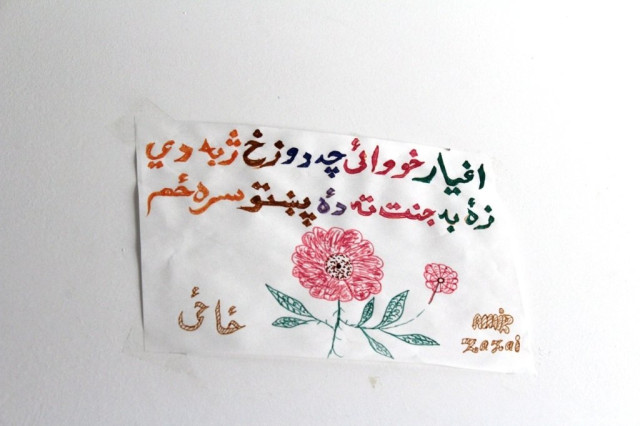 اغیار خو وائی چه د دوزخ ژبه دي
زهٔ به جنت ته دهٔ پښتو سره ځم
ځاځی
AMIR
Zazai